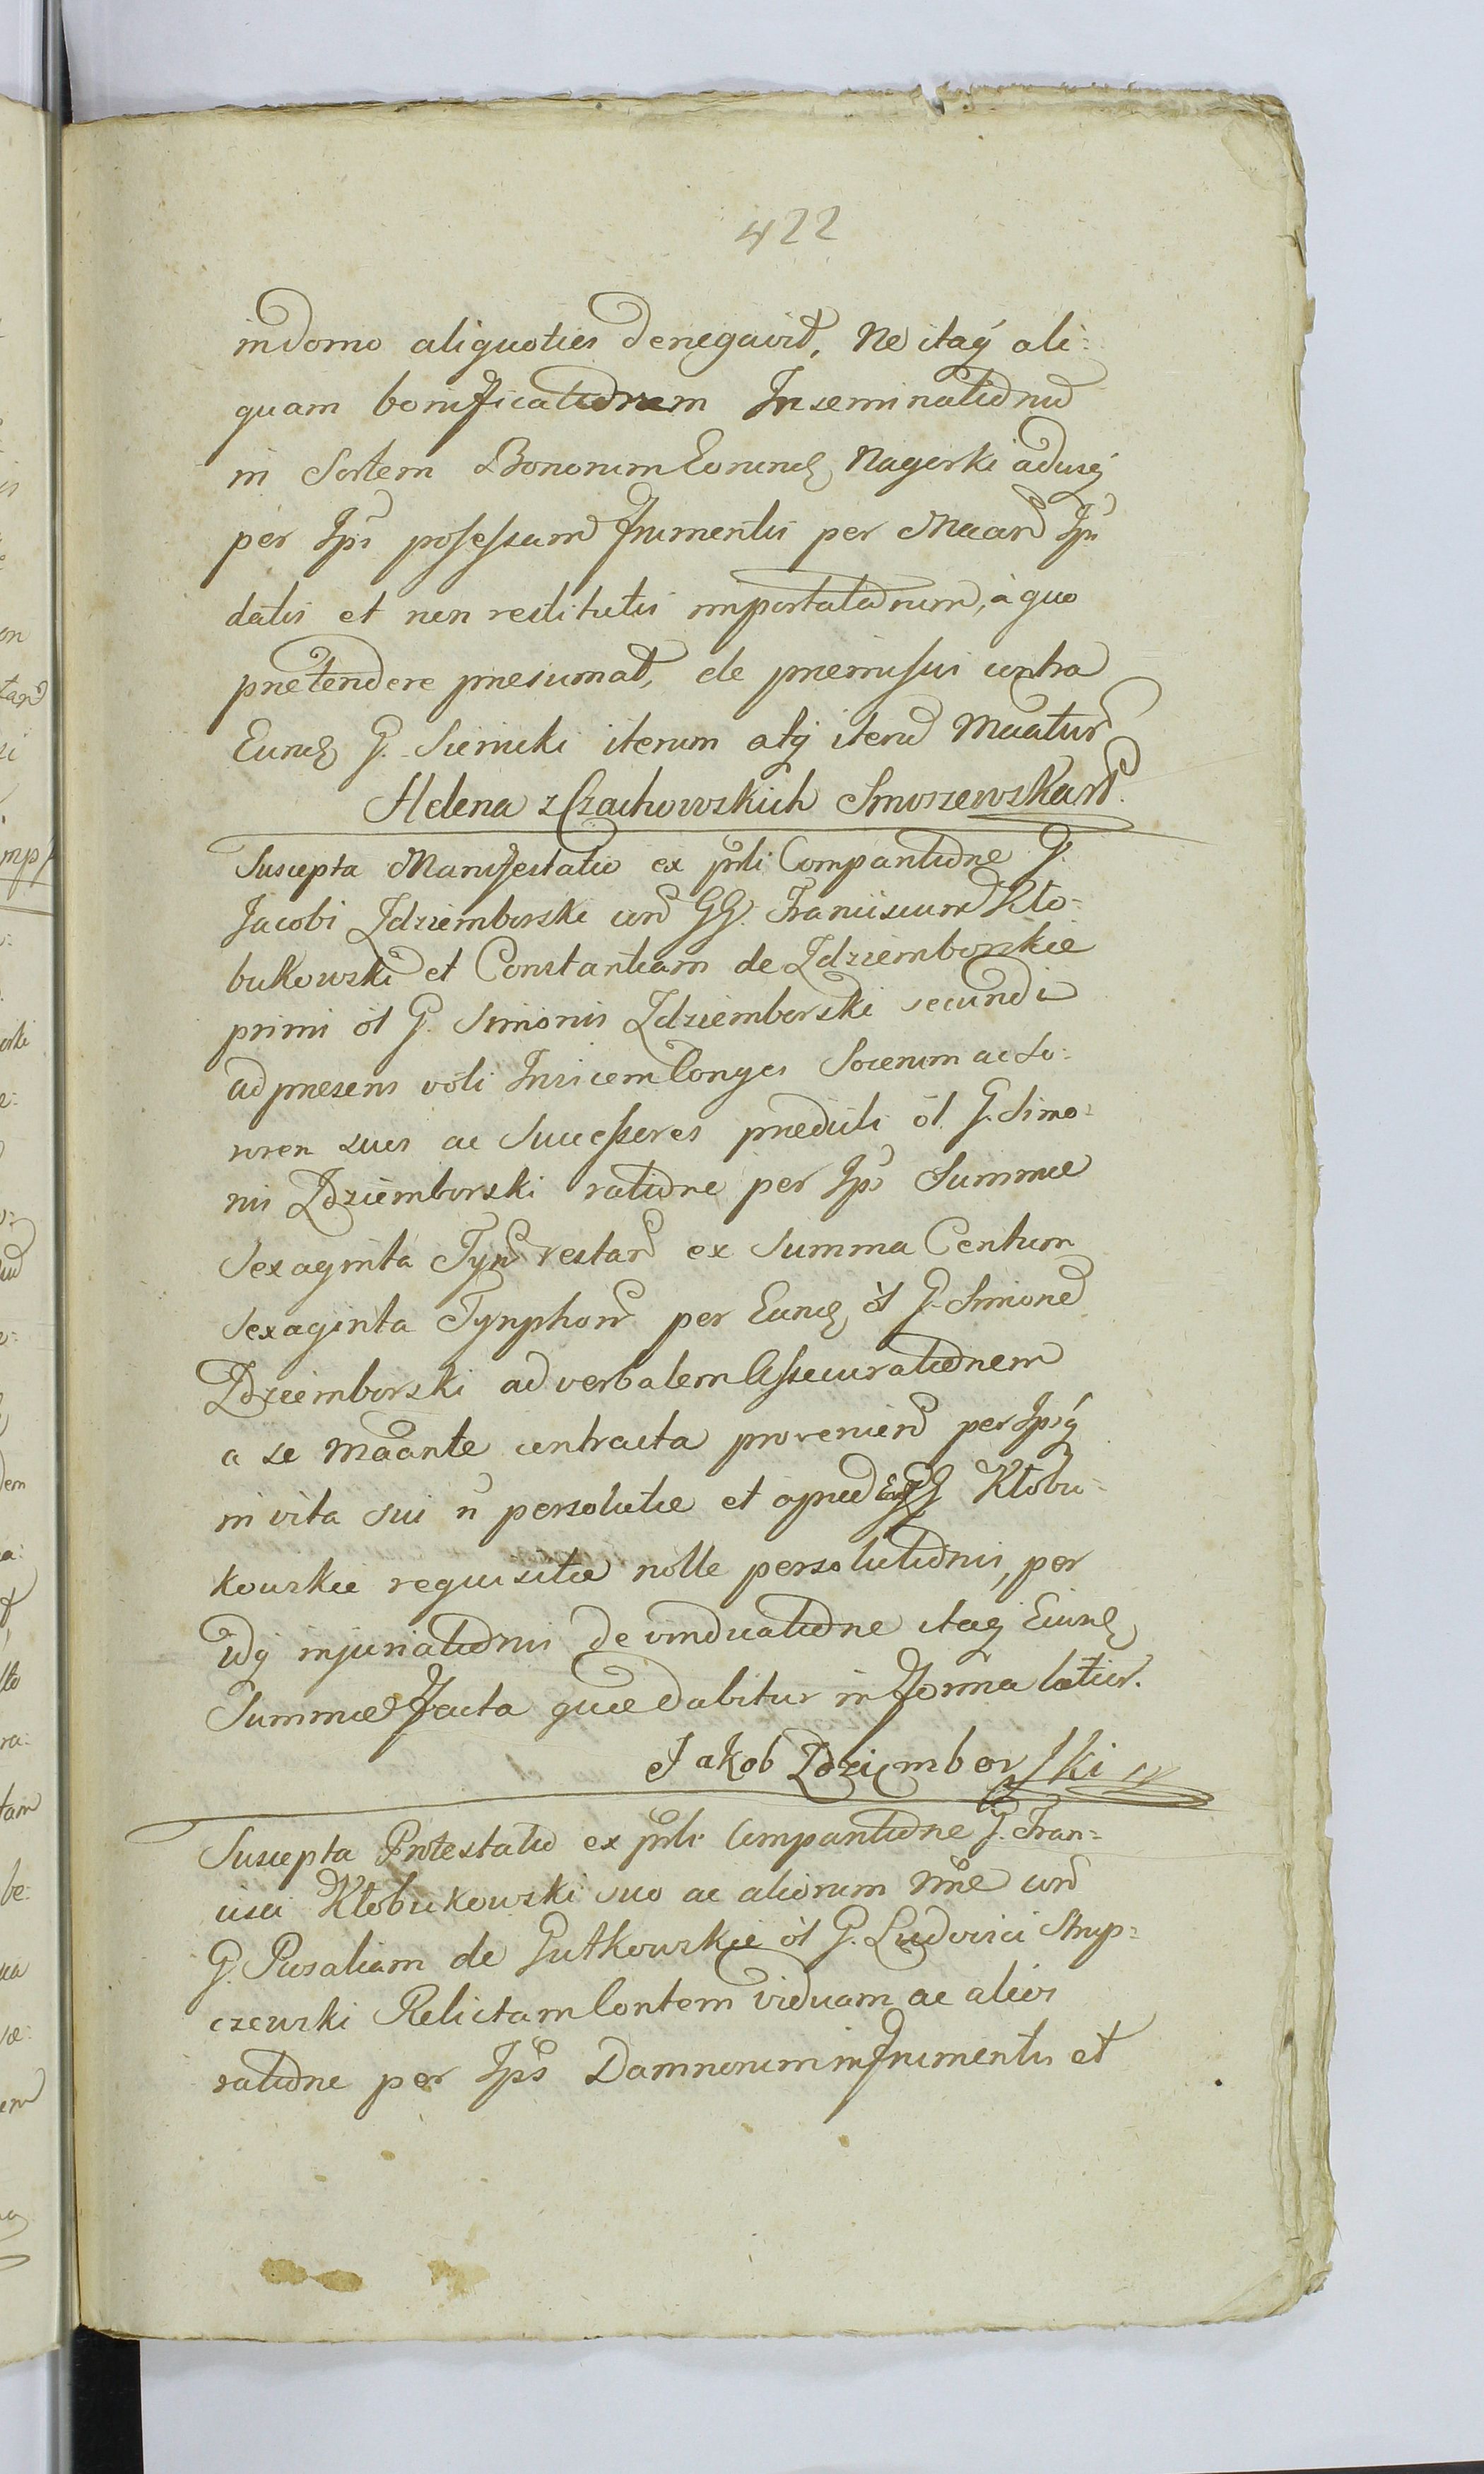 422
in domo aliquoties denegavit, Ne itaq ali:
quam bonificationem Inseminationu
in Sortem Bonorum Eorund Nagorki adusq
per Ips possessam frumentis per Maan Ips
datis et non restitutis importatarum, a quo
praetendere praesumat, de praemissis contra
Eund G. Siemicki iterum atq iteru Maatur
Helena z Czachowskich Smoszewska
Suscepta Manifestatio ex prti Comparitione G.
Jacobi Zdziemborski con GG. Franciscum Kło-
bukowski et Constantiam de Zdziemborskie
primi ol G. Simonis Zdziemborski secundi
ad praesens voti Invicem Conges Socerum ac So:
roren suos ac Successores praedicti ol. G. Simo-
nis Zdziemborski ratione per Ips Summae
Sexaginta Tynf restan ex Summa Centum
Sexaginta Tynphon per Eund ol G. Simone
Zdziemborski ad verbalem Assecurationem
a se Maante contracta provenien per Ipsq
in vita sui n persolutae et apud GG Kłobu-
kowskie requisitae nolle persolutionis, per
idq injuriationis de vindicatione itaq Eiusd
Summae facta quae dabitur in forma latior.
Jakob Zdziemborski
Suscepta Protestatio ex prti Comparitione G. Fran-
cisci Kłobukowski suo ac aliorum nne con
G. Rosaliam de Gutkowskie ol G. Ludovici Stryp-
czewski Relictam Contem viduam ac alios
ratione per Ips Damnorum in frumentis et